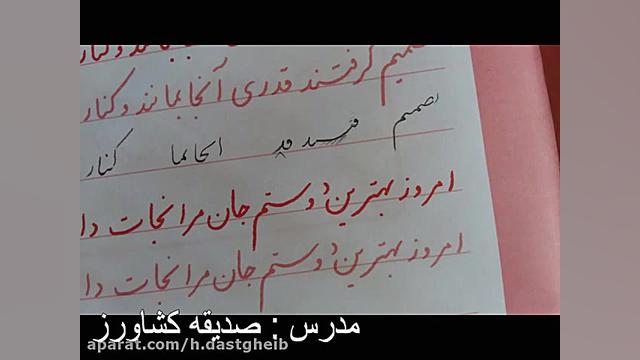 تصمیم گرفتند قدری آنجا بمانند و کنار
تصمیم فتند قد انجا بما کنار
امروز بهترین دوستم جان مرا نجات دا
امروز بهترین دوستم جان مرا نجات دا
مدرس : صدیقه کشاورز
aparat.com/h.dastgheib